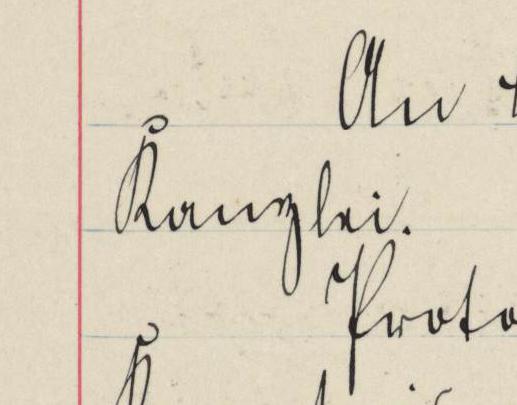 An
Kanzlei.
Proto